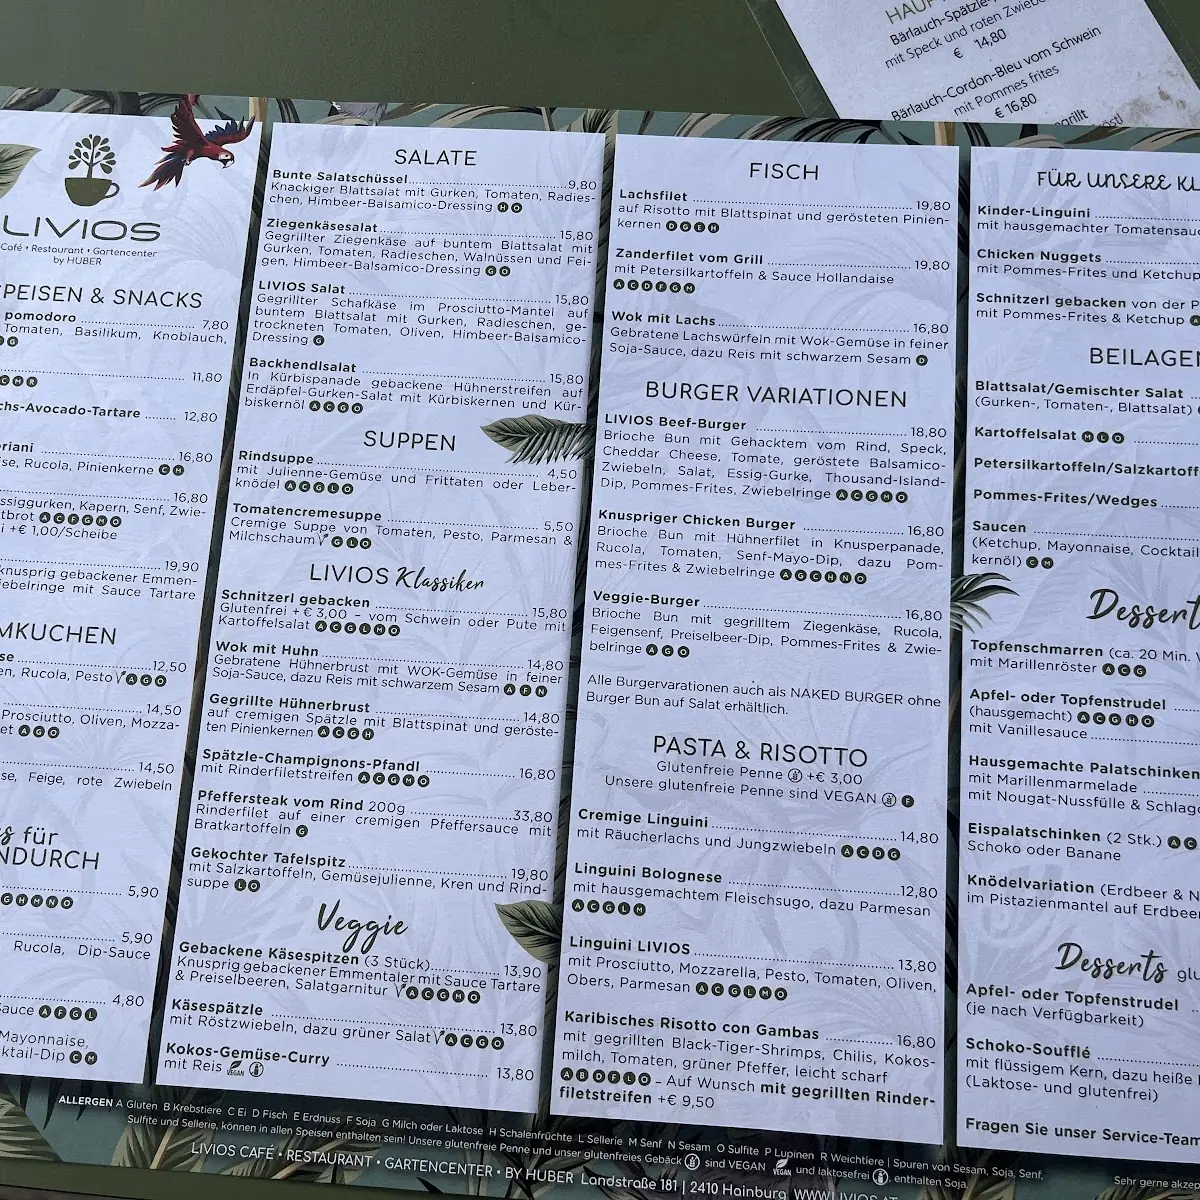 HAUP
Bärlauch-Spätzle-
mit Speck und roten Zwiebe
€ 14,80
Bärlauch-Cordon-Bleu vom Schwein
mit Pommes frites
€ 16,80
grillt
LIVIOS
Café • Restaurant • Gartencenter
by HUBER
PEISEN & SNACKS
pomodoro 7,80
Tomaten, Basilikum, Knoblauch,
G
11,80
C M R
hs-Avocado-Tartare 12,80
riani 16,80
se, Rucola, Pinienkerne C M
16,80
ssiggurken, Kapern, Senf, Zwie-
tbrot A C F G M O
i +€ 1,00/Scheibe
19,90
knusprig gebackener Emmen-
iebelringe mit Sauce Tartare
MKUCHEN
se 12,50
en, Rucola, Pesto A G O
14,50
Prosciutto, Oliven, Mozza-
et A G O
14,50
se, Feige, rote Zwiebeln
s für
NDURCH
5,90
G H M N O
5,90
Rucola, Dip-Sauce
4,80
auce A F G L
Mayonnaise,
ktail-Dip C M
SALATE
Bunte Salatschüssel 9,80
Knackiger Blattsalat mit Gurken, Tomaten, Radies-
chen, Himbeer-Balsamico-Dressing H O
Ziegenkäsesalat 15,80
Gegrillter Ziegenkäse auf buntem Blattsalat mit
Gurken, Tomaten, Radieschen, Walnüssen und Fei-
gen, Himbeer-Balsamico-Dressing G O
LIVIOS Salat 15,80
Gegrillter Schafkäse im Prosciutto-Mantel auf
buntem Blattsalat mit Gurken, Radieschen, ge-
trockneten Tomaten, Oliven, Himbeer-Balsamico-
Dressing G
Backhendlsalat 15,80
In Kürbispanade gebackene Hühnerstreifen auf
Erdäpfel-Gurken-Salat mit Kürbiskernen und Kür-
biskernöl A C G O
SUPPEN
Rindsuppe 4,50
mit Julienne-Gemüse und Frittaten oder Leber-
knödel A C G L O
Tomatencremesuppe 5,50
Cremige Suppe von Tomaten, Pesto, Parmesan &
Milchschaum G L O
LIVIOS Klassiker
Schnitzerl gebacken 15,80
Glutenfrei +€ 3,00 – vom Schwein oder Pute mit
Kartoffelsalat A C G L M O
Wok mit Huhn 14,80
Gebratene Hühnerbrust mit WOK-Gemüse in feiner
Soja-Sauce, dazu Reis mit schwarzem Sesam A F N
Gegrillte Hühnerbrust 14,80
auf cremigen Spätzle mit Blattspinat und geröste-
ten Pinienkernen A C G H
Spätzle-Champignons-Pfandl 16,80
mit Rinderfiletstreifen A C G M O
Pfeffersteak vom Rind 200g 33,80
Rinderfilet auf einer cremigen Pfeffersauce mit
Bratkartoffeln G
Gekochter Tafelspitz 19,80
mit Salzkartoffeln, Gemüsejulienne, Kren und Rind-
suppe L O
Veggie
Gebackene Käsespitzen (3 Stück) 13,90
Knusprig gebackener Emmentaler mit Sauce Tartare
& Preiselbeeren, Salatgarnitur A C G M O
Käsespätzle 13,80
mit Röstzwiebeln, dazu grüner Salat A C G O
Kokos-Gemüse-Curry 13,80
mit Reis VEGAN
FISCH
Lachsfilet 19,80
auf Risotto mit Blattspinat und gerösteten Pinien-
kernen D G E H
Zanderfilet vom Grill 19,80
mit Petersilkartoffeln & Sauce Hollandaise
A C D F G M
Wok mit Lachs 16,80
Gebratene Lachswürfeln mit Wok-Gemüse in feiner
Soja-Sauce, dazu Reis mit schwarzem Sesam D
BURGER VARIATIONEN
LIVIOS Beef-Burger 18,80
Brioche Bun mit Gehacktem vom Rind, Speck,
Cheddar Cheese, Tomate, geröstete Balsamico-
Zwiebeln, Salat, Essig-Gurke, Thousand-Island-
Dip, Pommes-Frites, Zwiebelringe A C G M O
Knuspriger Chicken Burger 16,80
Brioche Bun mit Hühnerfilet in Knusperpanade,
Rucola, Tomaten, Senf-Mayo-Dip, dazu Pom-
mes-Frites & Zwiebelringe A G C H N O
Veggie-Burger 16,80
Brioche Bun mit gegrilltem Ziegenkäse, Rucola,
Feigensenf, Preiselbeer-Dip, Pommes-Frites & Zwie-
belringe A G O
Alle Burgervarationen auch als NAKED BURGER ohne
Burger Bun auf Salat erhältlich.
PASTA & RISOTTO
Glutenfreie Penne +€ 3,00
Unsere glutenfreie Penne sind VEGAN F
Cremige Linguini 14,80
mit Räucherlachs und Jungzwiebeln A C D G
Linguini Bolognese 12,80
mit hausgemachtem Fleischsugo, dazu Parmesan
A C G L M
Linguini LIVIOS 13,80
mit Prosciutto, Mozzarella, Pesto, Tomaten, Oliven,
Obers, Parmesan A C G L M O
Karibisches Risotto con Gambas 16,80
mit gegrillten Black-Tiger-Shrimps, Chilis, Kokos-
milch, Tomaten, grüner Pfeffer, leicht scharf
A B D F L O – Auf Wunsch mit gegrillten Rinder-
filetstreifen +€ 9,50
FÜR UNSERE KL
Kinder-Linguini
mit hausgemachter Tomatensauc
Chicken Nuggets
mit Pommes-Frites und Ketchup
Schnitzerl gebacken von der P
mit Pommes-Frites & Ketchup A
BEILAGEN
Blattsalat/Gemischter Salat
(Gurken-, Tomaten-, Blattsalat)
Kartoffelsalat M L O
Petersilkartoffeln/Salzkartoff
Pommes-Frites/Wedges
Saucen
(Ketchup, Mayonnaise, Cocktail
kernöl) C M
Dessert
Topfenschmarren (ca. 20 Min.
mit Marillenröster A C G
Apfel- oder Topfenstrudel
(hausgemacht) A C G H O
mit Vanillesauce
Hausgemachte Palatschinken
mit Marillenmarmelade
mit Nougat-Nussfülle & Schlag
Eispalatschinken (2 Stk.) A C
Schoko oder Banane
Knödelvariation (Erdbeer & N
im Pistazienmantel auf Erdbee
Desserts glu
Apfel- oder Topfenstrudel
(je nach Verfügbarkeit)
Schoko-Soufflé
mit flüssigem Kern, dazu heiße
(Laktose- und glutenfrei)
Fragen Sie unser Service-Team
ALLERGEN A Gluten B Krebstiere C Ei D Fisch E Erdnuss F Soja G Milch oder Laktose H Schalenfrüchte L Sellerie M Senf N Sesam O Sulfite P Lupinen R Weichtiere | Spuren von Sesam, Soja, Senf,
Sulfite und Sellerie, können in allen Speisen enthalten sein! Unsere glutenfreie Penne und unser glutenfreies Gebäck sind VEGAN VEGAN und laktosefrei, enthalten Soja.
LIVIOS CAFÉ • RESTAURANT • GARTENCENTER • BY HUBER Landstraße 181 | 2410 Hainburg WWW.LIVIOS.AT
Sehr gerne akzep